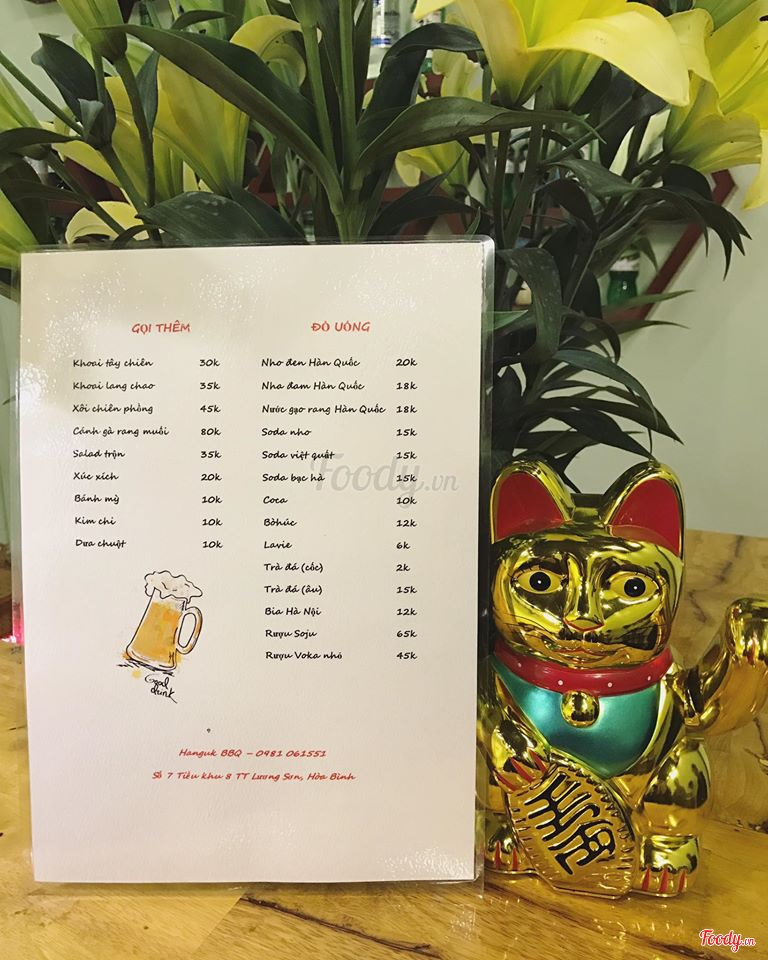 GỌI THÊM
Khoai tây chiên 30k
Khoai lang chao 35k
Xôi chiên phồng 45k
Cánh gà rang muối 80k
Salad trộn 35k
Xúc xích 20k
Bánh mỳ 10k
Kim chi 10k
Dưa chuột 10k
Good
drink
ĐỒ UỐNG
Nho đen Hàn Quốc 20k
Nha đam Hàn Quốc 18k
Nước gạo rang Hàn Quốc 18k
Soda nho 15k
Soda việt quất 15k
Soda bạc hà 15k
Coca 10k
Bòhúc 12k
Lavie 6k
Trà đá (cốc) 2k
Trà đá (âu) 15k
Bia Hà Nội 12k
Rượu Soju 65k
Rượu Voka nhỏ 45k
Hanguk BBQ – 0981 061551
Số 7 Tiểu khu 8 TT Lương Sơn, Hòa Bình
Foody.vn
Foody.vn